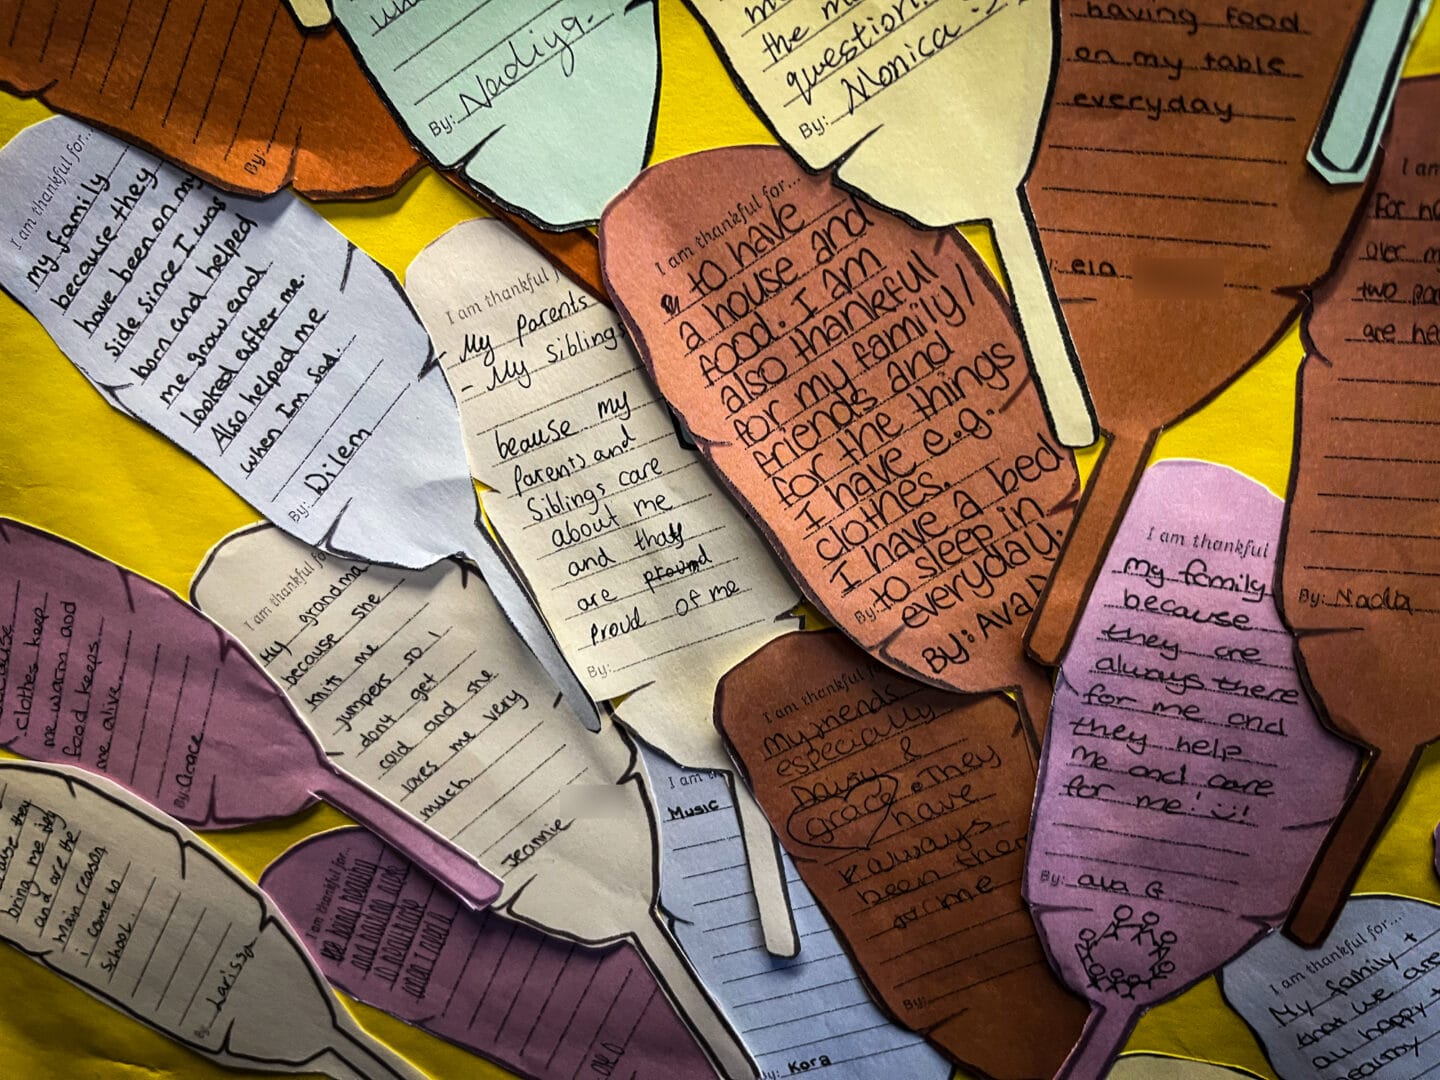 By:
By: Nadiya.
the m
question.
By: Monica :)
having food
on my table
everyday
ela
I am
for
over m
two par
are hea
By: Nadia
I am thankful for...
my family
because they
have been on my
side since I was
born and helped
me grow and
looked after me.
Also helped me
when Im sad.
By: Dilem
I am thankful f
- My Parents
- My Siblings
beause my
parents and
Siblings care
about me
and that
are
proud of me
By:
I am thankful for...
to have
a house and
food. I am
also thankeful
for my family/
friends and
for the things
I have e.g.
clothes.
I have a bed
to sleep in
everyday.
By:
By: Ava
I am thankful
my family
because
they are
always there
for me and
they help
me and care
for me! :)!
By: ava G
because
clothes keep
me warm and
food keeps
me alive.
By: Grace
I am thankful fo
My grandma
because she
knits me
jumpers so I
dont get
cold and she
loves me very
much
Jeannie
I am thankful f
my friends
especially
Daisy &
Grace. They
have
always
been ther
for me
By:
I am
Music
By: Kora
they
bring me joy
and are the
main reason
i come to
School.
By: Larissa
I am thankful for...
I am thankful for...
My family +
that we are
all happy +
healthy